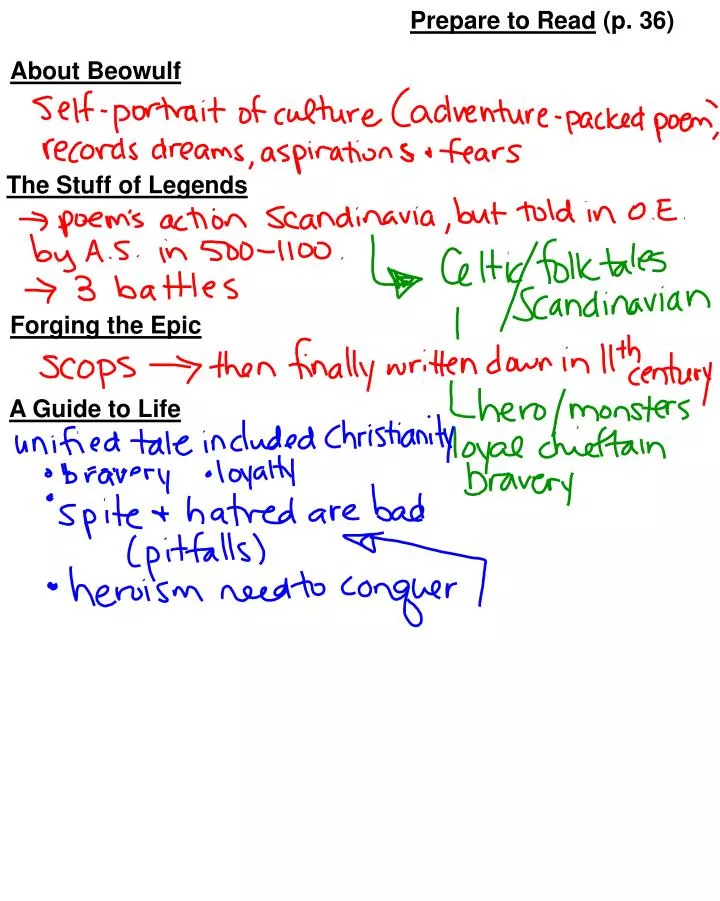 Prepare to Read (p. 36)
About Beowulf
Self-portrait of culture (adventure-packed poem),
records dreams, aspirations + fears
The Stuff of Legends
→ poem's action Scandinavia, but told in O.E.
by A.S. in 500-1100.
→ 3 battles
Celtic/folk tales
/Scandinavian
Forging the Epic
SCOPS → then finally written down in 11th century
hero/monsters
loyal chieftain
bravery
A Guide to Life
unified tale included Christianity
• bravery • loyalty
• spite + hatred are bad
(pitfalls)
• heroism need to conquer